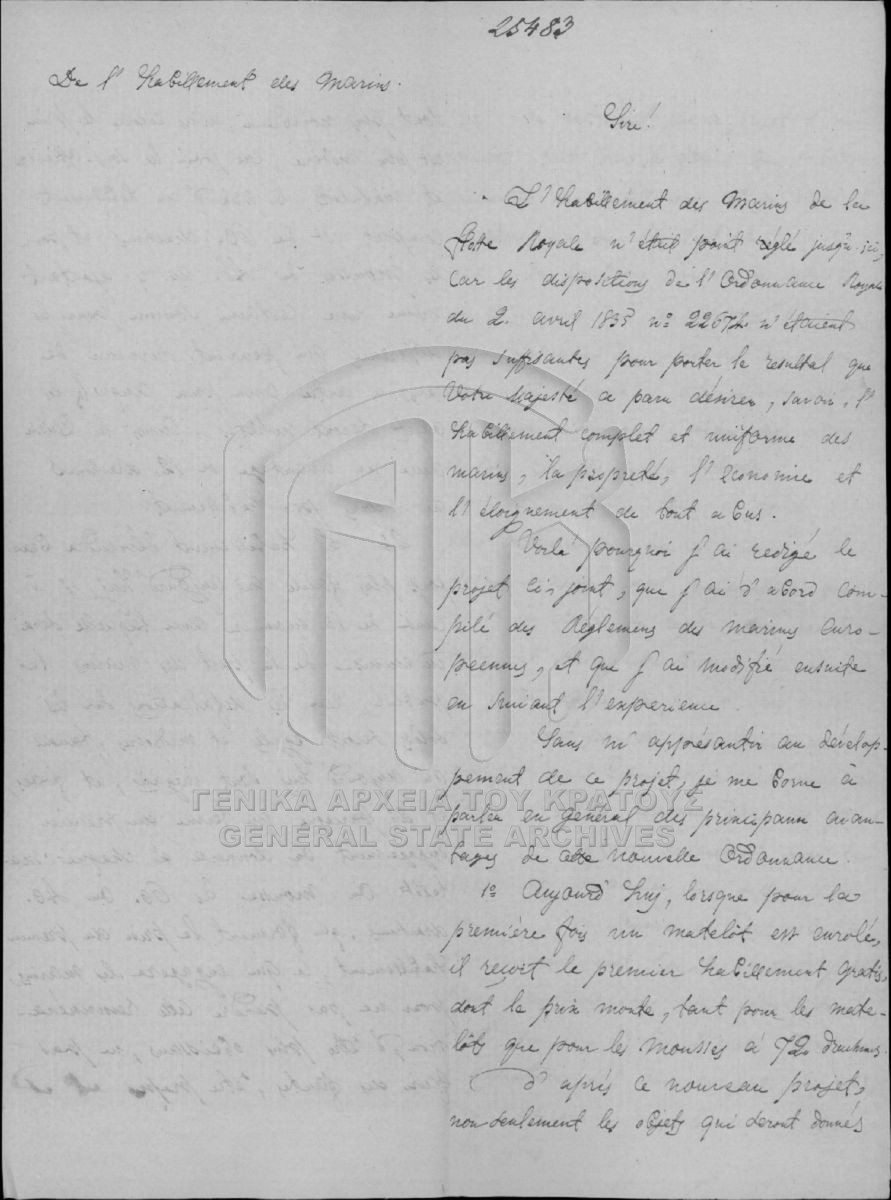 25483
De l'habillement des Marins.
Sire!
L'habillement des Marins de la
flote Royale n'était point réglé jusqu'ici,
car les dispositions de l'Ordonnance Royale
du 2. avril 1835 nº 22674 n'étaient
pas suffisantes pour porter le resultat que
Votre Majesté a paru désirer, savoir, l'
habillement complet et uniforme des
marins, la propreté, l'economie et
l'éloignement de tout abus.
Voilà pourquoi j'ai redigé le
projet ci-joint, que j'ai d'abord com-
pilé des Réglemens des marines euro-
peennes, et que j'ai modifié ensuite
en suivant l'experience.
Sans m'appésantir au dévelop-
pement de ce projet, je me borne à
parler en général des principaux avan-
tages de cette nouvelle Ordonnance.
1º Aujourd'huj, lorsque pour la
première fois un matelôt est enrolé,
il reçoit le premier habillement gratis,
dont le prix monte, tant pour les mate-
lôts que pour les mousses à 72 drachmes.
D'après ce nouveau projet,
non seulement les objets qui seront donnés
ΓΕΝΙΚΑ ΑΡΧΕΙΑ ΤΟΥ ΚΡΑΤΟΥΣ
GENERAL STATE ARCHIVES